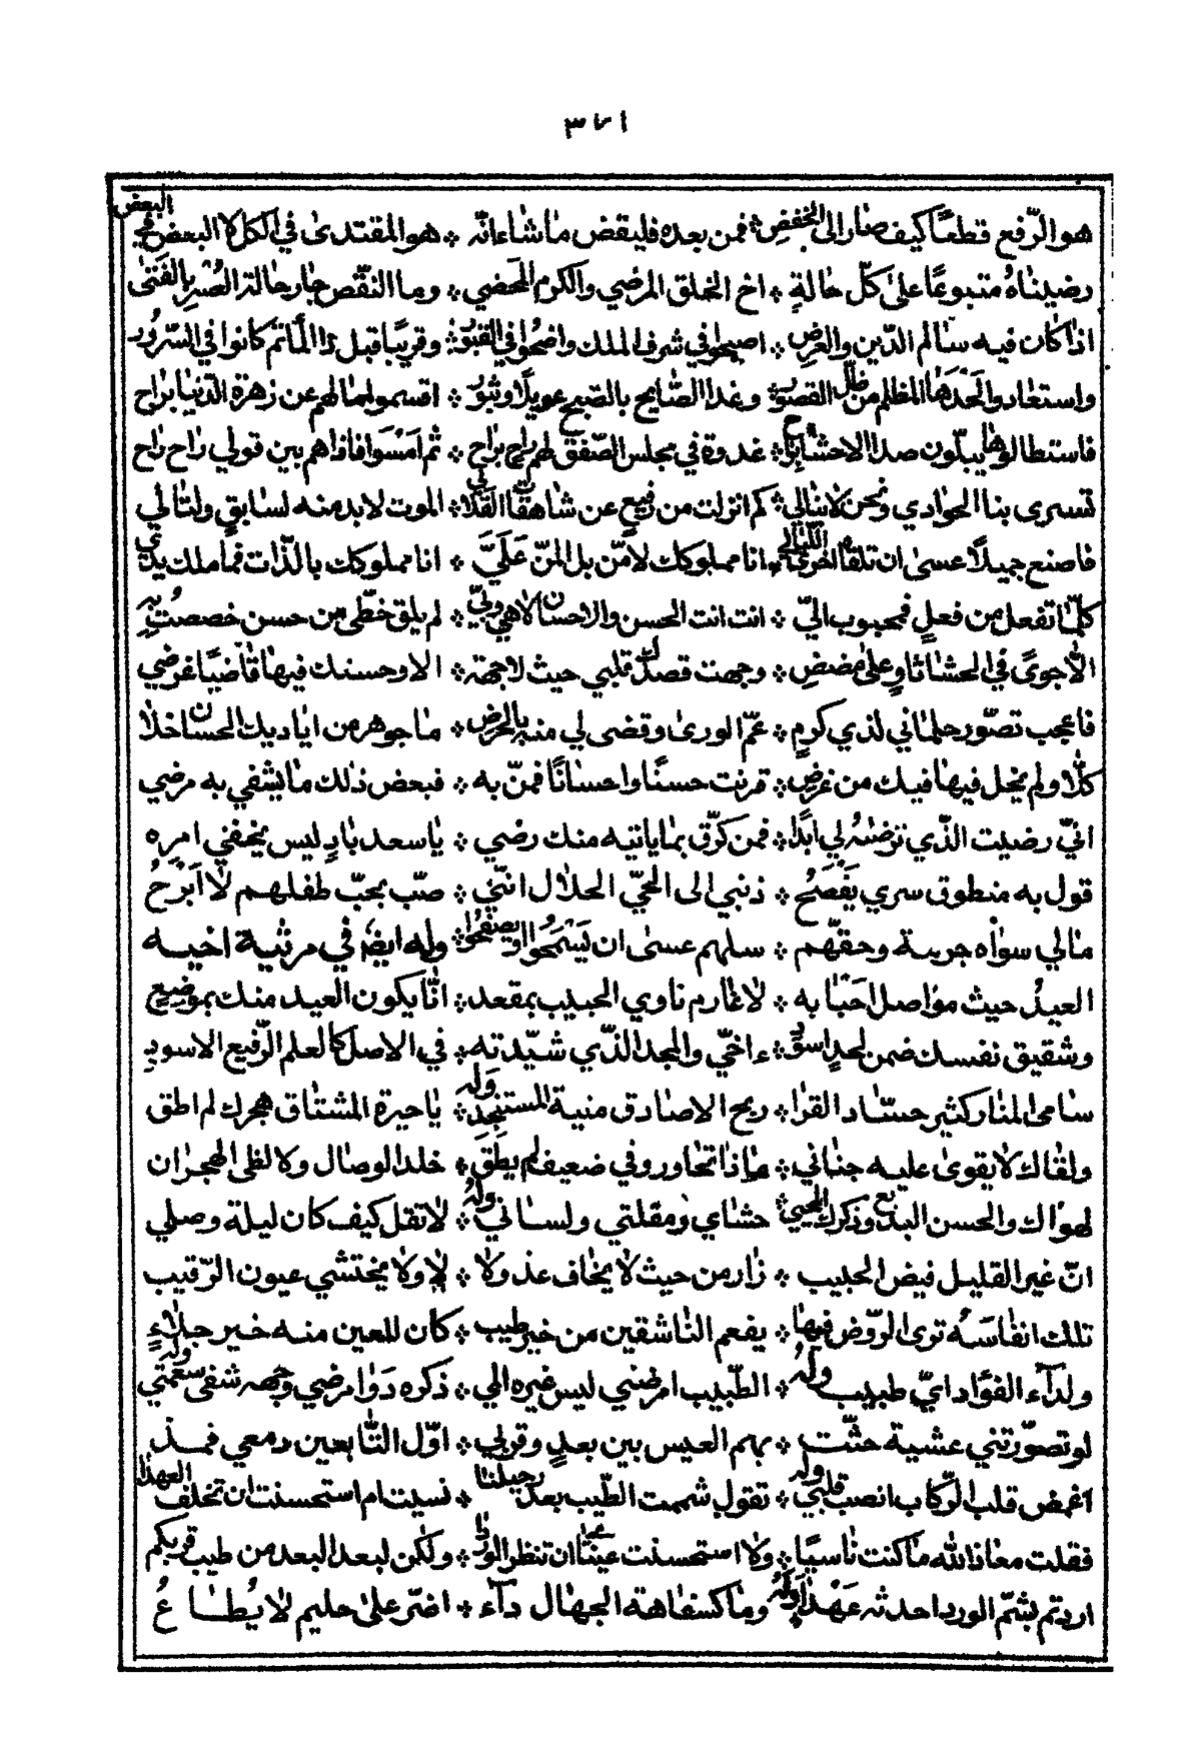 ٣٧١
هو الرّفع قطعًا كيف صار الى الخفض ۞ فمن بعده فليقض ما شاء انّه ۞ هو المقتدى في الكل لا البعض في البعض
رضيناه متبوعًا على كلّ حالةٍ ۞ اخ الخلق المرضي والكرم المحضي ۞ وما النقص جار حالة العُسْر بالفتى
اذا كان فيه سالم الدّين والعرض ۞ اصبحوا في شرف الملك واضحُوا في القبُور ۞ وقريبًا قبل ذا المأتم كانوا في السّرُور
واستعادوا لَحْدَها المظلم من ظلّ القصُور ۞ وغدا الصّايح بالصّبح عويلًا وثبُور ۞ اقسموا ما لهم عن زهرة الدّنيا براح
فاستطالوها يبلّون صدا الاحشا براح ۞ غدوة في مجلس الصّفق لهم راح براح ۞ ثم امسَوا فاذا هم بين قولي راح راح
تسرى بنا الحوادي ونحن لا نبالي ۞ كم انزلت من رفيع عن شاهقات القلالي ۞ الموت لا بد منه لسابقٍ ولتالي
فاصنع جميلًا عسى ان تلقاه اخرى الليالي ۞ انا مملوكك لا مَن بل المنّ عَلَيَّ ۞ انا مملوكك بالذّات فما ملك يديّ
كلّما تفعل من فعلٍ فمحبوب اليّ ۞ انت انت الحسن والاحسان لا هي وبيّ ۞ لم يلق خطّى من حسن خصصتُ به
الّا جوىً في الحشا ثاوٍ على مضضِ ۞ وجهت قصدك قلبي حيث لا جهة ۞ الا وحسنك فيها قاضيًا غرضي
فاعجب تصوّر حلماني لذي كرمٍ ۞ عمّ الورى وقضى لي منه بالحرض ۞ ما جوهر من اياديك الحسان خلا
كلّا ولم يخل فيها فيك من عرضِ ۞ قرنت حسنًا واحسانًا فمنّ به ۞ فبعض ذلك ما يشفي به مرضي
انيّ رضيت الّذي ترضَهُ لي ابدًا ۞ فمن كرّق بما ياتيه منك رضي ۞ يا سعد بادٍ ليس يخفي امره
قول به منطوق سري يَفْصَحُ ۞ ذنبي الى الحيّ الحلال انّني ۞ صبّ بحبّ طفلهم لا ابرَحُ
مالي سواه جريمة وحقّهم ۞ سلهم عسى ان يسمحُوا او يصفحُوا ۞ وله ايضا في مرثية اخيه
العيدُ حيث مواصل احبابه ۞ لا غارم ناوي الحبيب بمقعد ۞ انّا يكون العيد منك بموضع
وشقيق نفسك ضمن لحدٍ اسوَد ۞ ءاخيّ والمجد الّذي شيّدته ۞ في الاصل كالعلم الرّفيع الاسود
سامى المنار كثير حسّاد القرا ۞ ريح الاصادق منية المستنجد وله ۞ يا حيرة المشتاق هجرك لم اطق
ولقاك لا يقوى عليه جناني ۞ ماذا تحاور وفي ضعيف لم يطق ۞ خلد الوصال وكالظى الهجران
لهواك والحسن البديع وذكرك المحيي ۞ حشاي ومقلتي ولساني وله ۞ لا تقل كيف كان ليلة وصلي
انّ غير القليل فيض الحبيب ۞ زار من حيث لا يخاف عذولا ۞ لا ولا يختشي عيون الرّقيب
تلك انفاسَهُ ترى الروّض فيها ۞ يفعم النّاشقين من خير طيب ۞ كان للعين منه خير جلاءٍ
ولدآء الفؤاد ايّ طبيب وله ۞ الطّبيب امرضني ليس غيره الي ۞ ذكره دَوا مرضي وجهه شفى سقمتي وله
لو تصوّرتني عشية حثّت ۞ بهم العيس بين بعدٍ وقربي ۞ اوّل التّابعين دمعي فمذ
اغمض قلب الرّكاب انصب قلبي وله ۞ تقول شممت الطّيب بعد رحيلنا ۞ نسيت ام استحسنت ان تخلف العهدا
فقلت معاذ الله ما كنت ناسيًا ۞ ولا استحسنت عينًا ان تنظر الورى ۞ ولكن لبعد البعد من طيب قربكم
اردتم بشمّ الورد احدثه عَهْدًا وله ۞ وما كسفاهة الجهال دآء ۞ اضرّ على حليم لا يُطاعُ